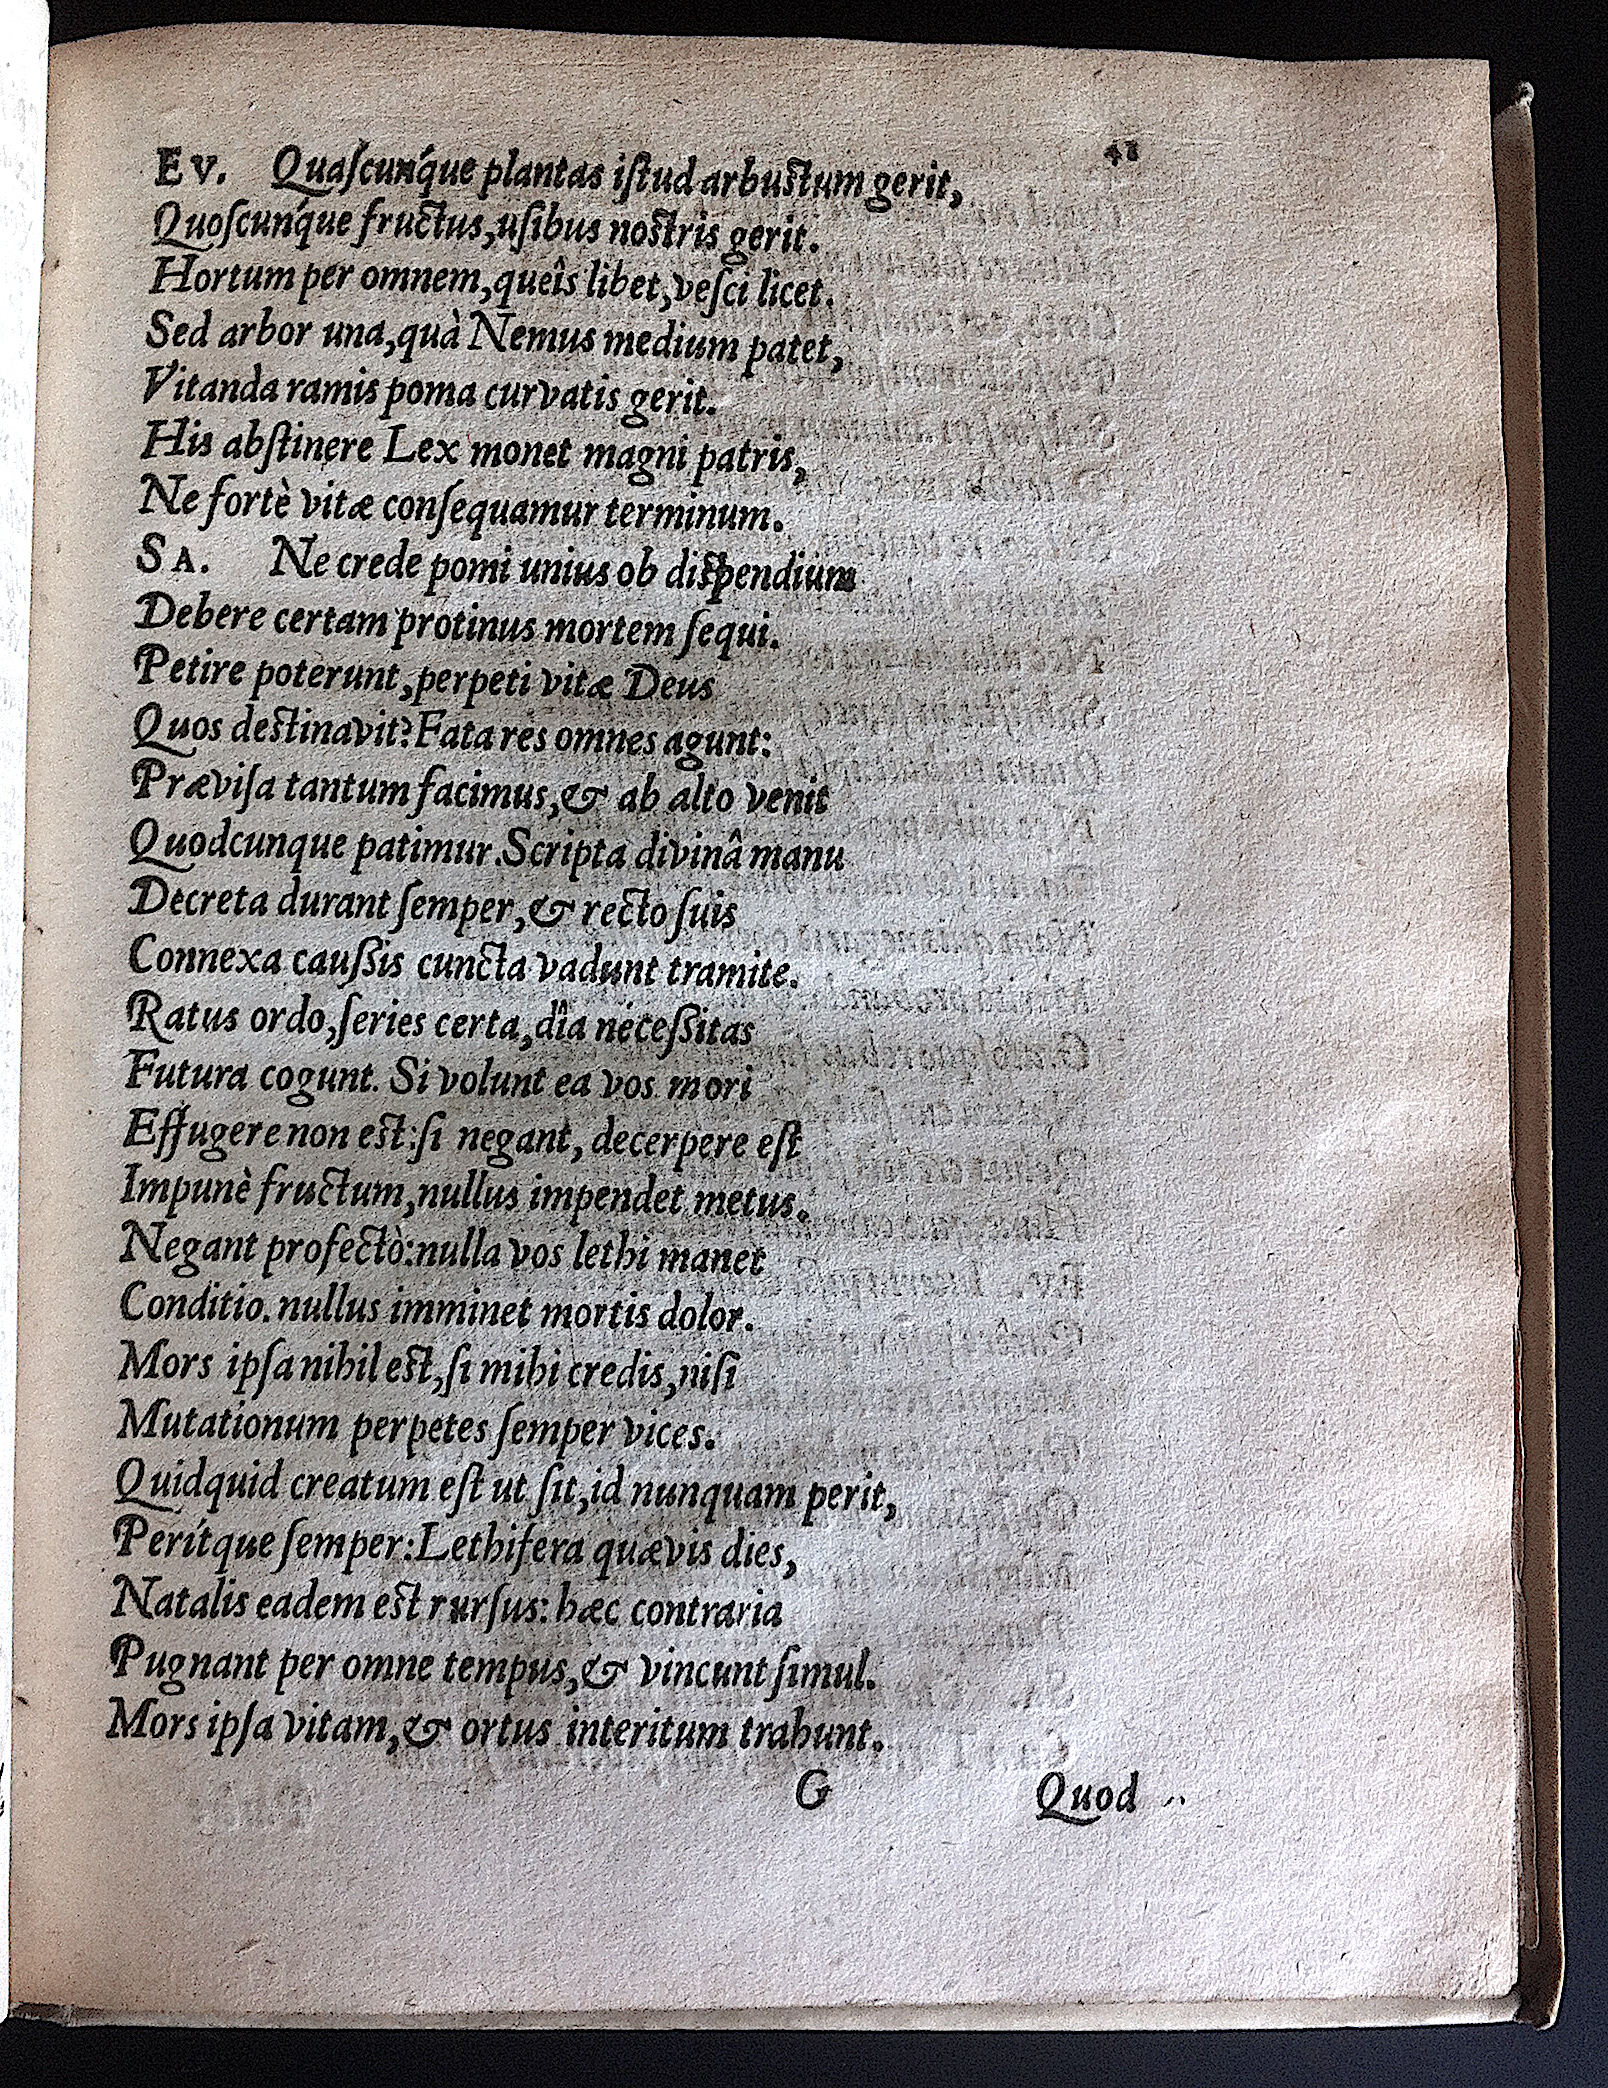 41
EV. Quaſcunq́ue plantas iſtud arbustum gerit,
Quoſcunq́ue fructus, uſibus nostris gerit.
Hortum per omnem, queîs libet, veſci licet.
Sed arbor una, quà Nemus medium patet,
Vitanda ramis poma curvatis gerit.
His abſtinere Lex monet magni patris,
Ne fortè vitæ conſequamur terminum.
SA. Ne crede pomi unius ob dispendium
Debere certam protinus mortem ſequi.
Petire poterunt, perpeti vitæ Deus
Quos destinavit? Fata res omnes agunt:
Præviſa tantum facimus, & ab alto venit
Quodcunque patimur. Scripta divinâ manu
Decreta durant ſemper, & recto ſuis
Connexa cauſsis cuncta vadunt tramite.
Ratus ordo, ſeries certa, dîa neceſsitas
Futura cogunt. Si volunt ea vos mori
Effugere non est: ſi negant, decerpere eſt
Impunè fructum, nullus impendet metus.
Negant profectò: nulla vos lethi manet
Conditio. nullus imminet mortis dolor.
Mors ipſa nihil est, ſi mihi credis, niſi
Mutationum perpetes ſemper vices.
Quidquid creatum eſt ut ſit, id nunquam perit,
Perítque ſemper: Lethifera quævis dies,
Natalis eadem est rurſus: hæc contraria
Pugnant per omne tempus, & vincunt ſimul.
Mors ipſa vitam, & ortus interitum trahunt.
G Quod